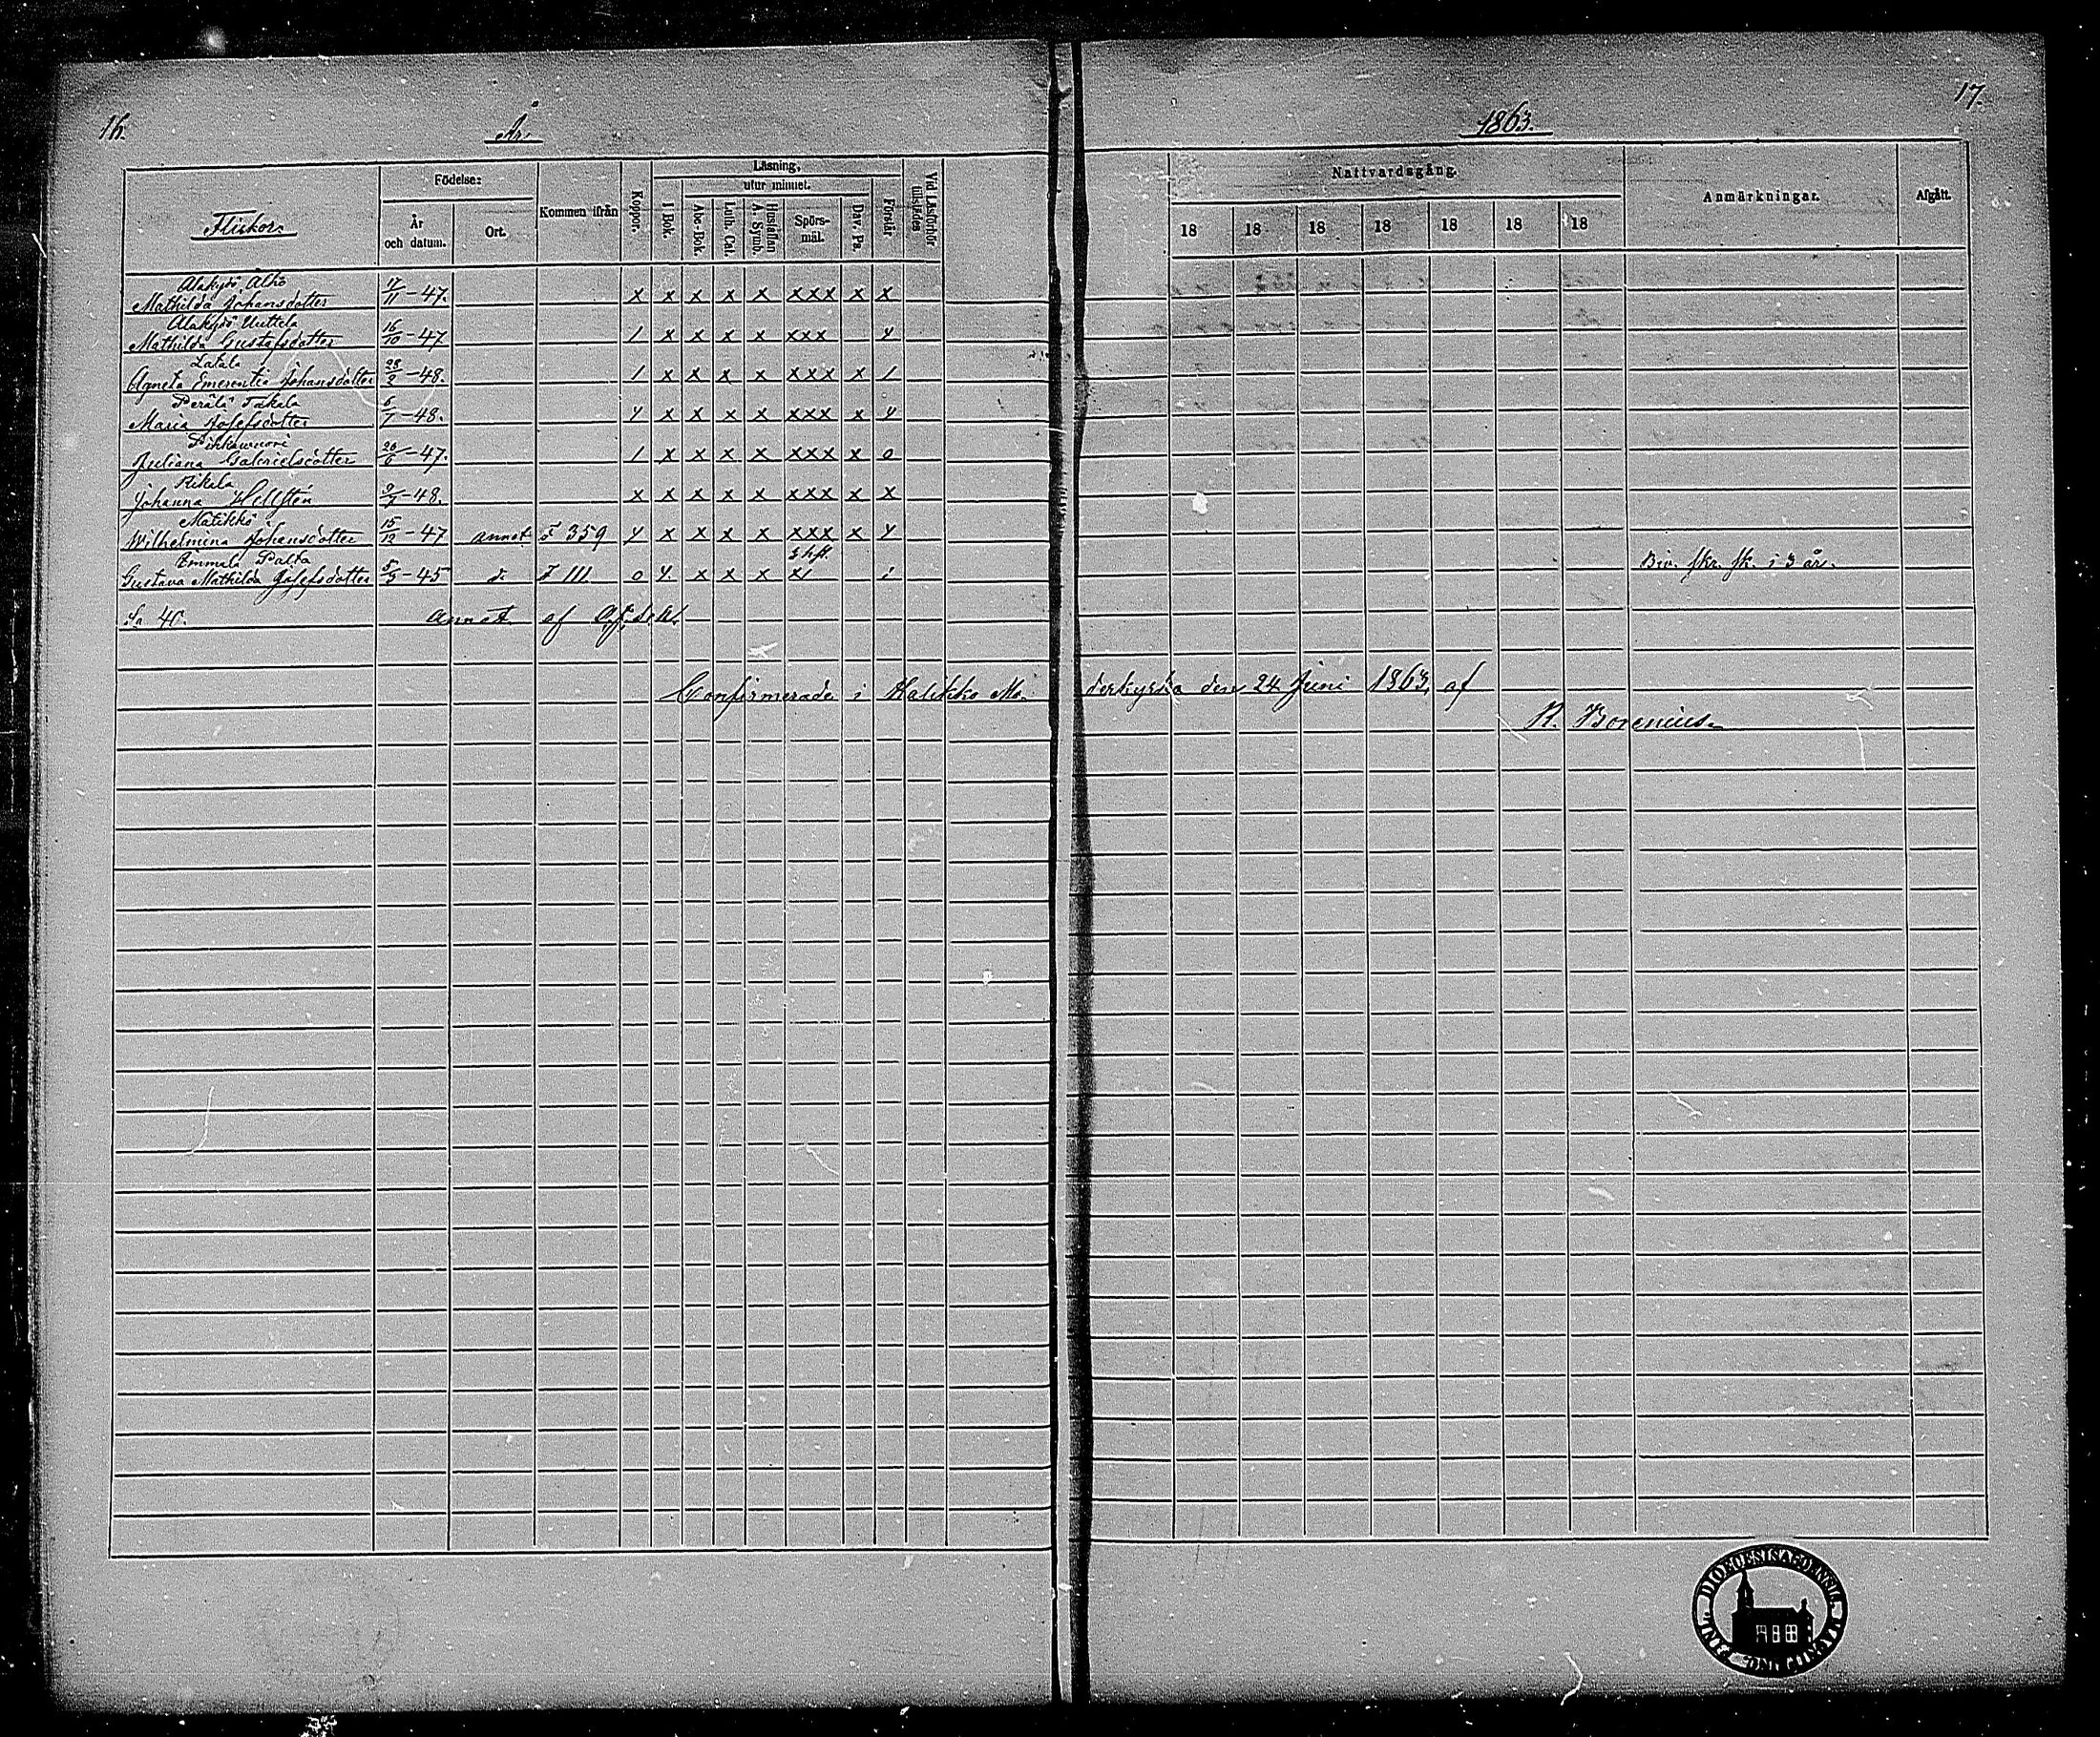 16.
År
1863.
17.
Flickor.
Födelse:
År och datum.
Ort.
Kommen ifrån
Koppor.
Läsning,
utur minnet.
I Bok.
Abc-Bok.
Luth. Cat.
Hustaflan A. Symb.
Spörsmål.
Dav. Ps.
Förstår
Vid Läsförhör tillstädes
Nattvardsgång.
18 18 18 18 18 18 18
Anmärkningar.
Afgått.
Alakyrö Alho
Mathilda Johansdotter 17/11 -47. x x x x x xxx x x
Alakyrö Uuttela
Mathilda Gustafsdotter 16/10 -47 / x x x x xxx y
Latala
Agneta Emerentia Johansdotter 28/2 -48. / x x x x xxx x /
Perälä Takala
Maria Josefsdotter 6/7 -48. y x x x x xxx x y
Juliana Gabrielsdotter 20/6 -47. / x x x x xxx x o
Rikala
Johanna Hellstén 9/7 -48. x x x x x xxx x x
Wilhelmina Johansdotter 15/12 -47 annot F 359 y x x x x xxx x y
Immala Palta
Gustava Mathilda Josefsdotter -45 d. F III. o y. x x x x/ i
Biv. skr. sk. i 3 år.
Sa 40. annot af
Confirmerade i Halikko Moderkyrka den 24 Juni 1863, af
R. Borenius.